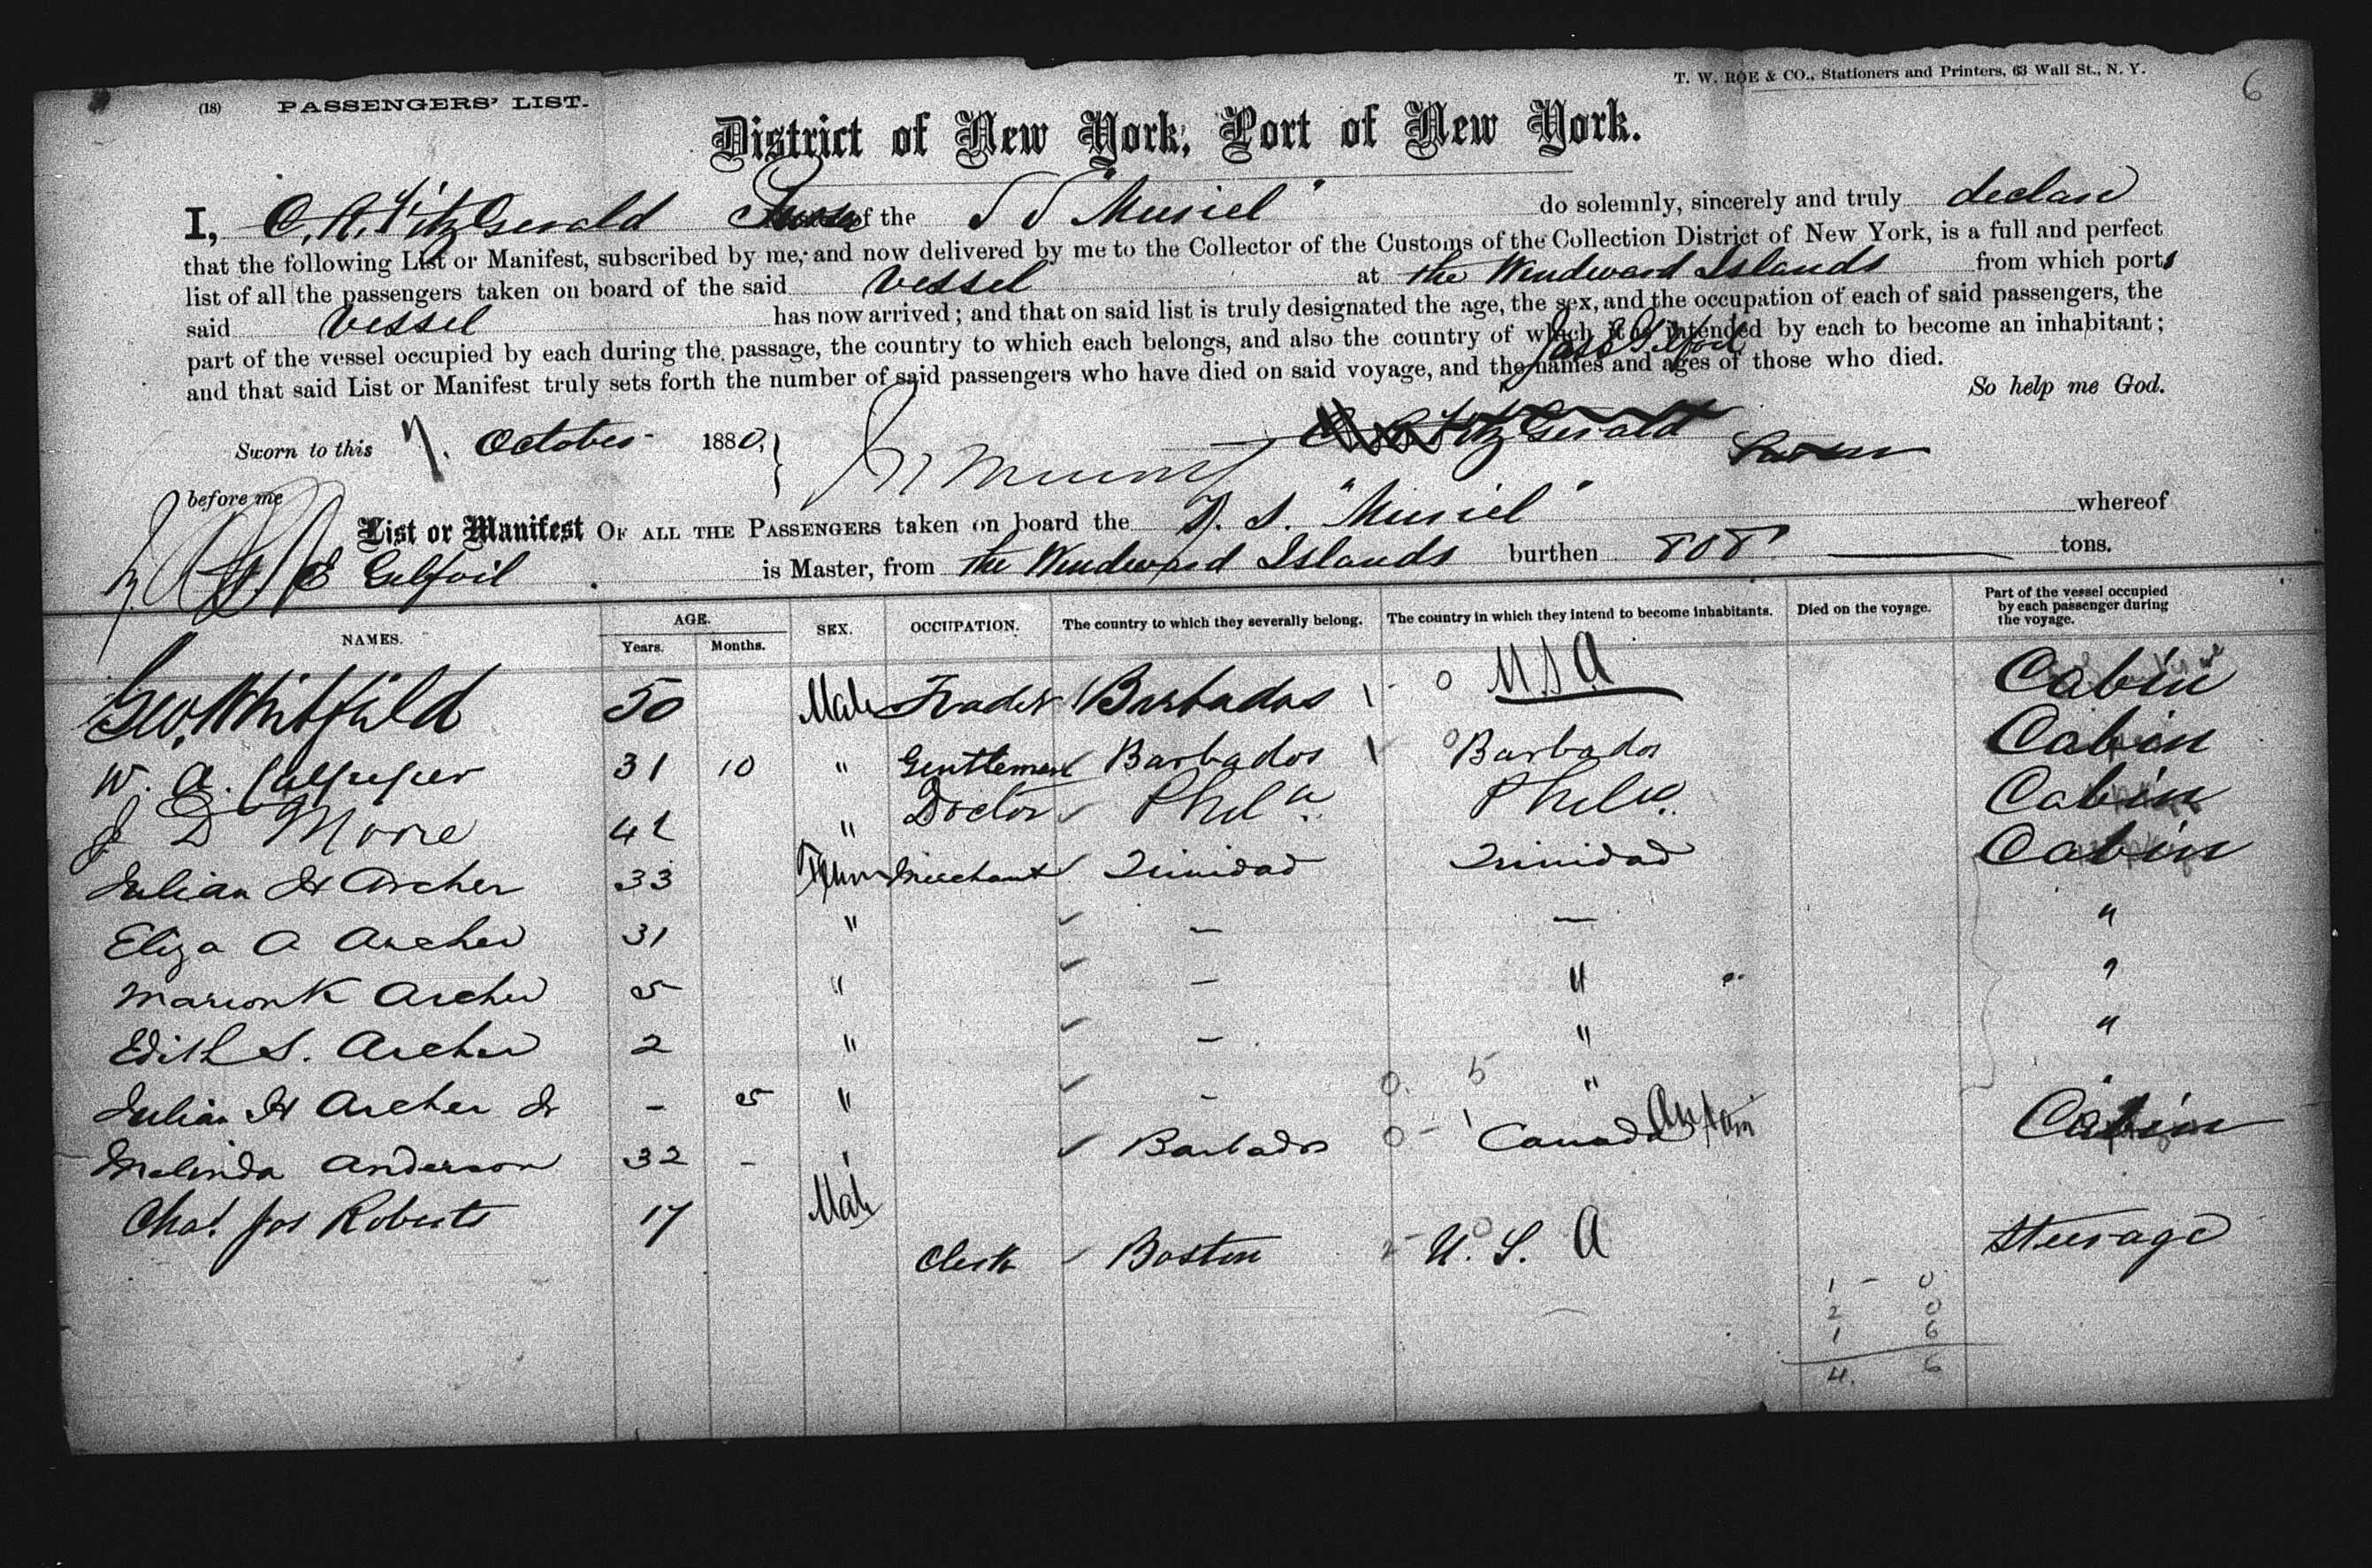 T. W. ROE & CO., Stationers and Printers, 63 Wall St., N. Y.
6
(18) PASSENGERS' LIST.
District of New York, Port of New York.
I, C. A. FitzGerald Purser of the S S "Muriel" do solemnly, sincerely and truly declare
that the following List or Manifest, subscribed by me, and now delivered by me to the Collector of the Customs of the Collection District of New York, is a full and perfect
list of all the passengers taken on board of the said vessel at the Windward Islands from which ports
said vessel has now arrived; and that on said list is truly designated the age, the sex, and the occupation of each of said passengers, the
part of the vessel occupied by each during the passage, the country to which each belongs, and also the country of which it is intended by each to become an inhabitant;
and that said List or Manifest truly sets forth the number of said passengers who have died on said voyage, and the names and ages of those who died.
So help me God.
Sworn to this 7. October 1880, C A FitzGerald
Purser
before me
List or Manifest OF ALL THE PASSENGERS taken on board the S. S. "Muriel" whereof
E Gulfoil is Master, from the Windward Islands burthen 808 tons.
NAMES. AGE. Years. Months. SEX. OCCUPATION. The country to which they severally belong. The country in which they intend to become inhabitants. Died on the voyage. Part of the vessel occupied by each passenger during the voyage.
Geo. Whitfield 50 Male Trader Barbados 1 - 0 U.S.A Cabin
W. A. Culpeper 31 10 " Gentleman Barbados 1 0 Barbados Cabin
J D Moore 42 " Doctor Phila. Phila. Cabin
Julian H Archer 33 Merchant Trinidad Trinidad Cabin
Eliza A Archer 31 " — — "
Marion K Archer 5 " — " "
Edith S. Archer 2 " — " "
Julian H Archer Jr - 5 " - 0. 5 "
Melinda Anderson 32 - " Barbados 0 - 1 Canada Cabin
Chas. Jos Roberts 17 Male
Clerk Boston U. S. A Steerage
1 - 0
2 0
1 6
4. 6